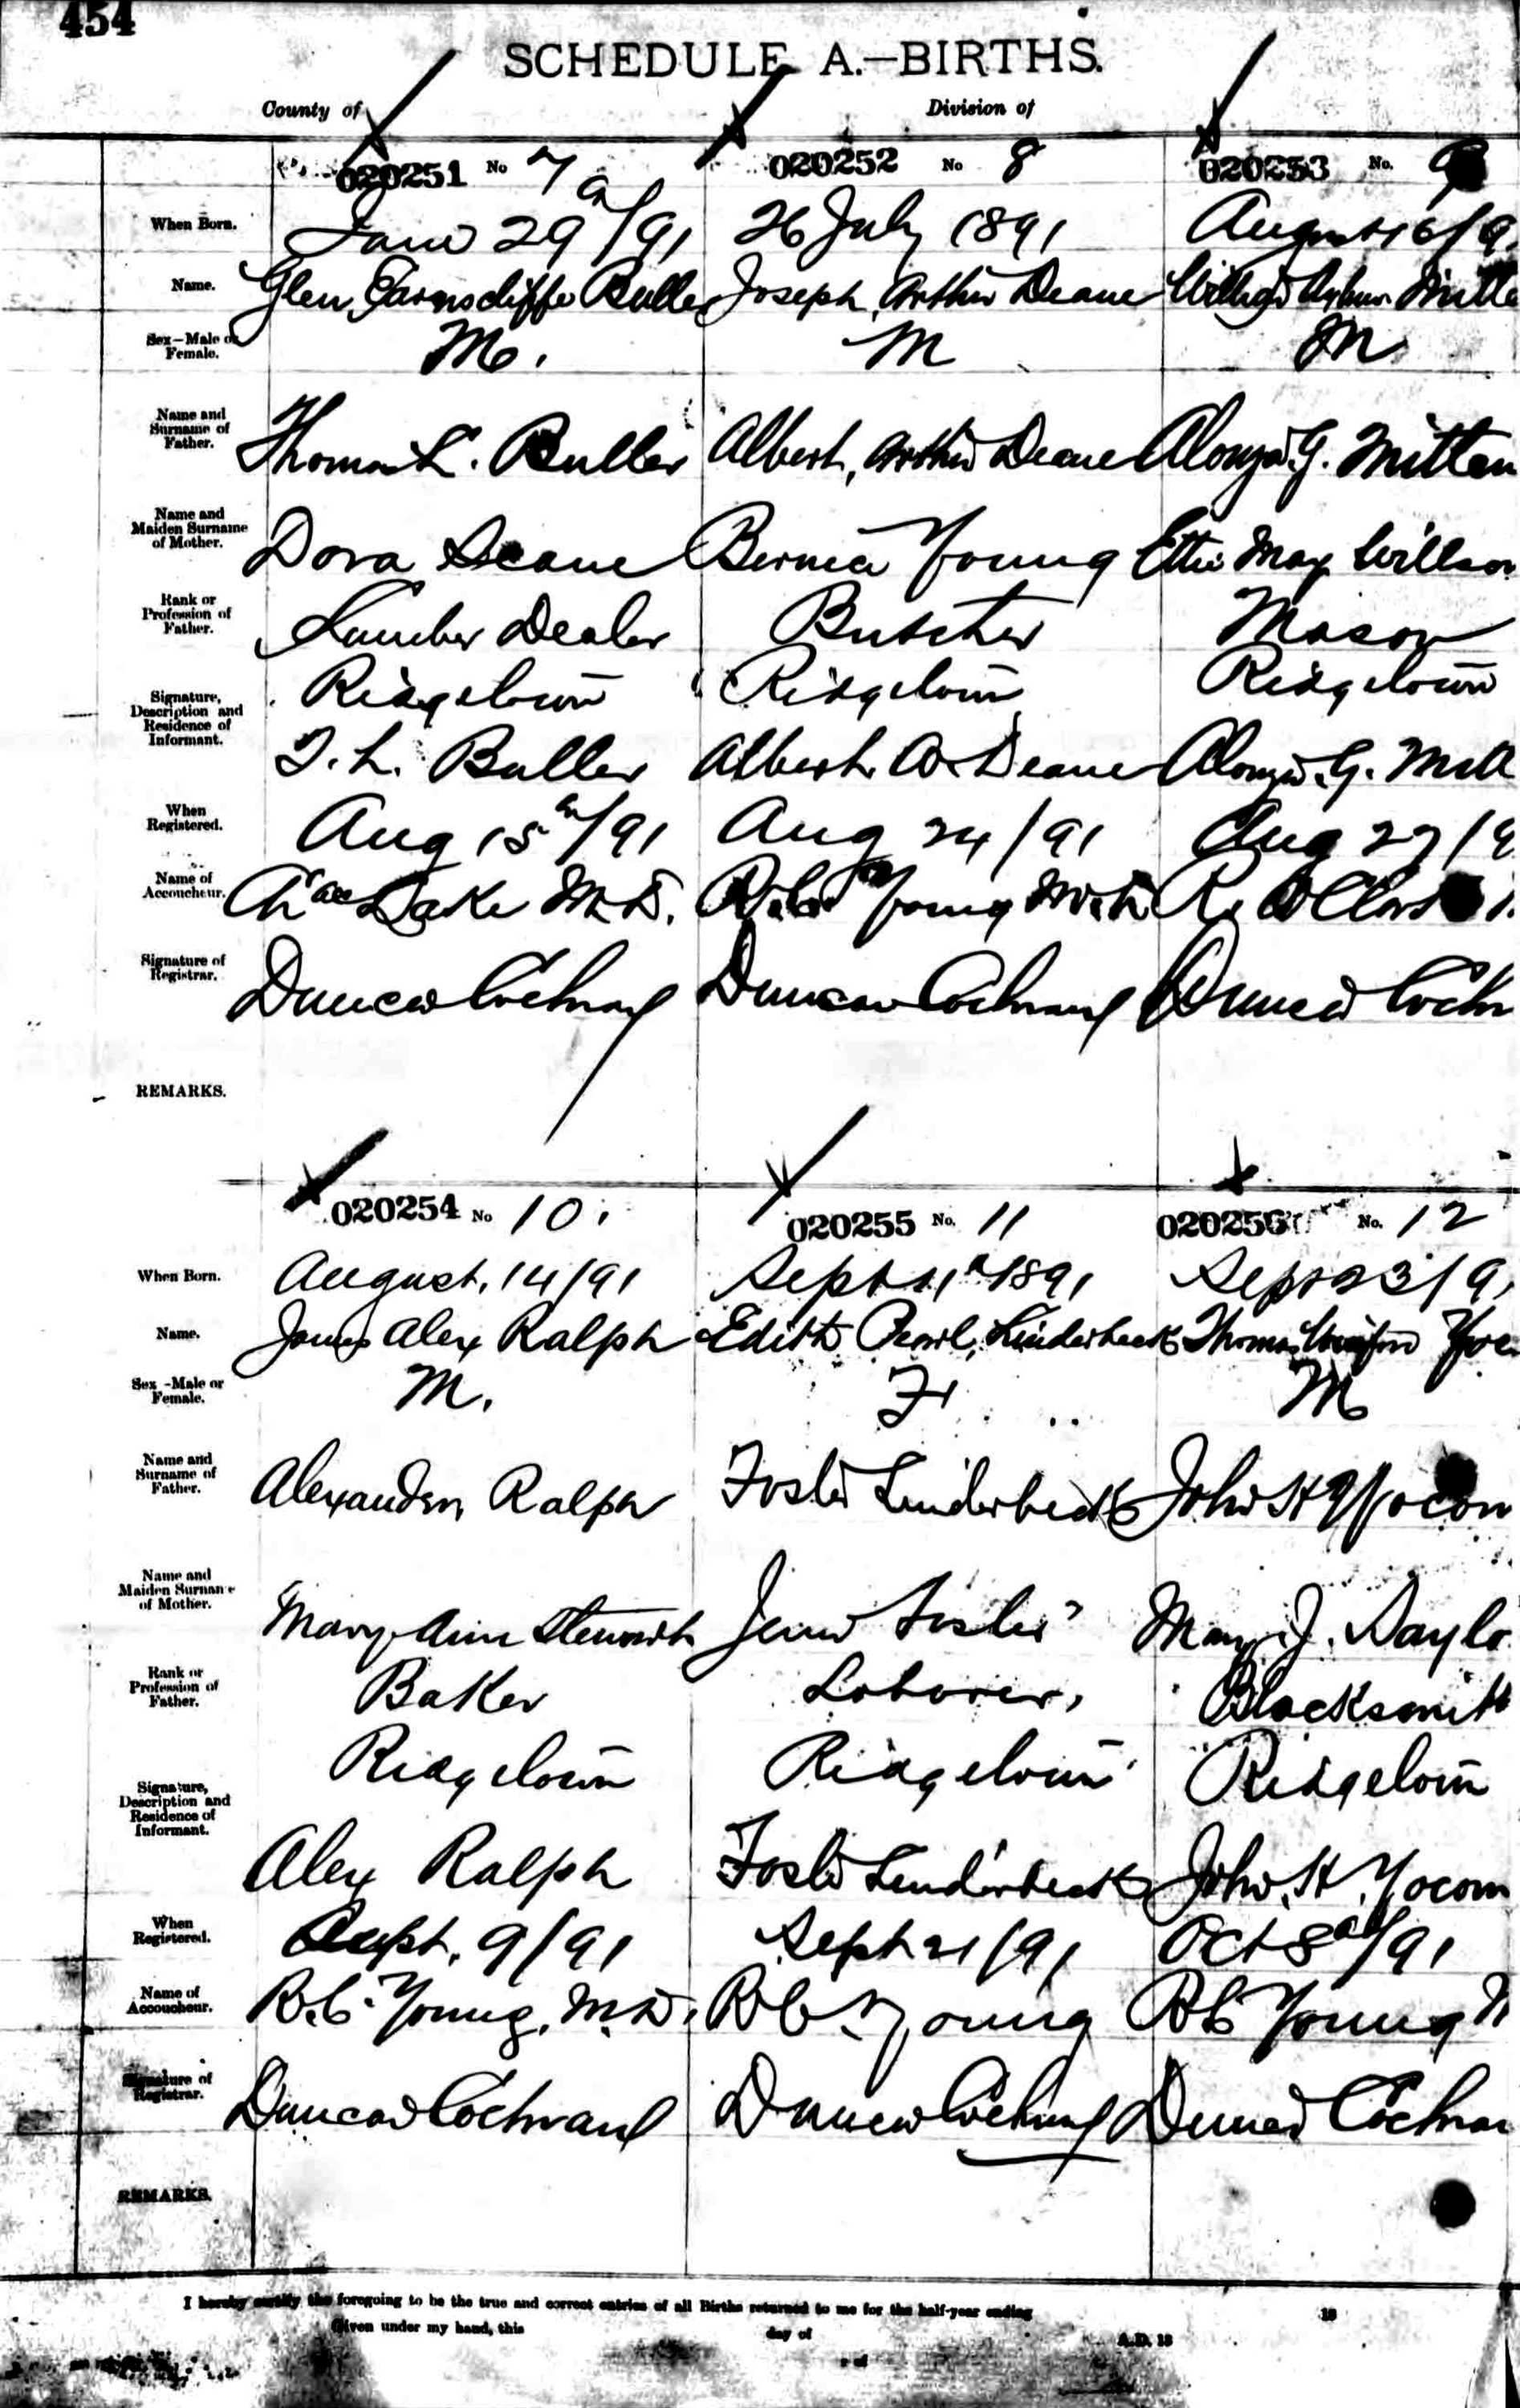 454
SCHEDULE A.—BIRTHS.
County of
Division of
020251 No 7
020252 No 8
020253 No. 9
When Born.
29th/91
26 July 1891
August 16/9
Name.
Glen Earnscliffe Buller
Joseph, Arthur Deane
Arthur
Sex—Male or
Female.
M.
M
M
Name and
Surname of
Father.
Thomas L. Buller
Albert, Arthur Deane
Alonzo G. Mitten
Name and
Maiden Surname
of Mother.
Dora Deane
Young
Ettie May Willson
Rank or
Profession of
Father.
Lumber Dealer
Butcher
Mason
Ridgetown
Ridgetown
Ridgetown
Signature,
Description and
Residence of
Informant.
T. L. Buller
Albert A. Deane
Alonzo G. Mitt
When
Registered.
Aug 15th/91
Aug 24/91
Aug 27/9
Name of
Accoucheur.
Lake M.D.
Young M.D.
R.
Signature of
Registrar.
Duncan Cochrane
Duncan Cochrane
Duncan Cochr
REMARKS.
020254 No 10.
020255 No. 11
020256 No. 12
When Born.
August, 14/91
Sept 11th 1891
Sept 23/9
Name.
James Alex Ralph
Edith Pearl, Linderbeck
Thomas Yoc
Sex—Male or
Female.
M.
F
M
Name and
Surname of
Father.
Alexander Ralph
Foster Linderbeck
John H Yocom
Name and
Maiden Surname
of Mother.
Mary Ann Stewart
Foster
Mary J. Saylo
Rank or
Profession of
Father.
Baker
Laborer,
Blacksmith
Ridgetown
Ridgetown
Ridgetown
Signature,
Description and
Residence of
Informant.
Alex Ralph
Foster Linderbeck
John. H. Yocom
When
Registered.
Sept. 9/91
Sept 21/91
Oct 8th/91
Name of
Accoucheur.
R.C. Young, M.D.
R C Young
R C Young M
Signature of
Registrar.
Duncan Cochrane
Duncan Cochrane
Duncan Cochran
REMARKS.
I hereby certify the foregoing to be the true and correct entries of all Births returned to me for the half-year ending 18
Given under my hand, this day of A.D. 18